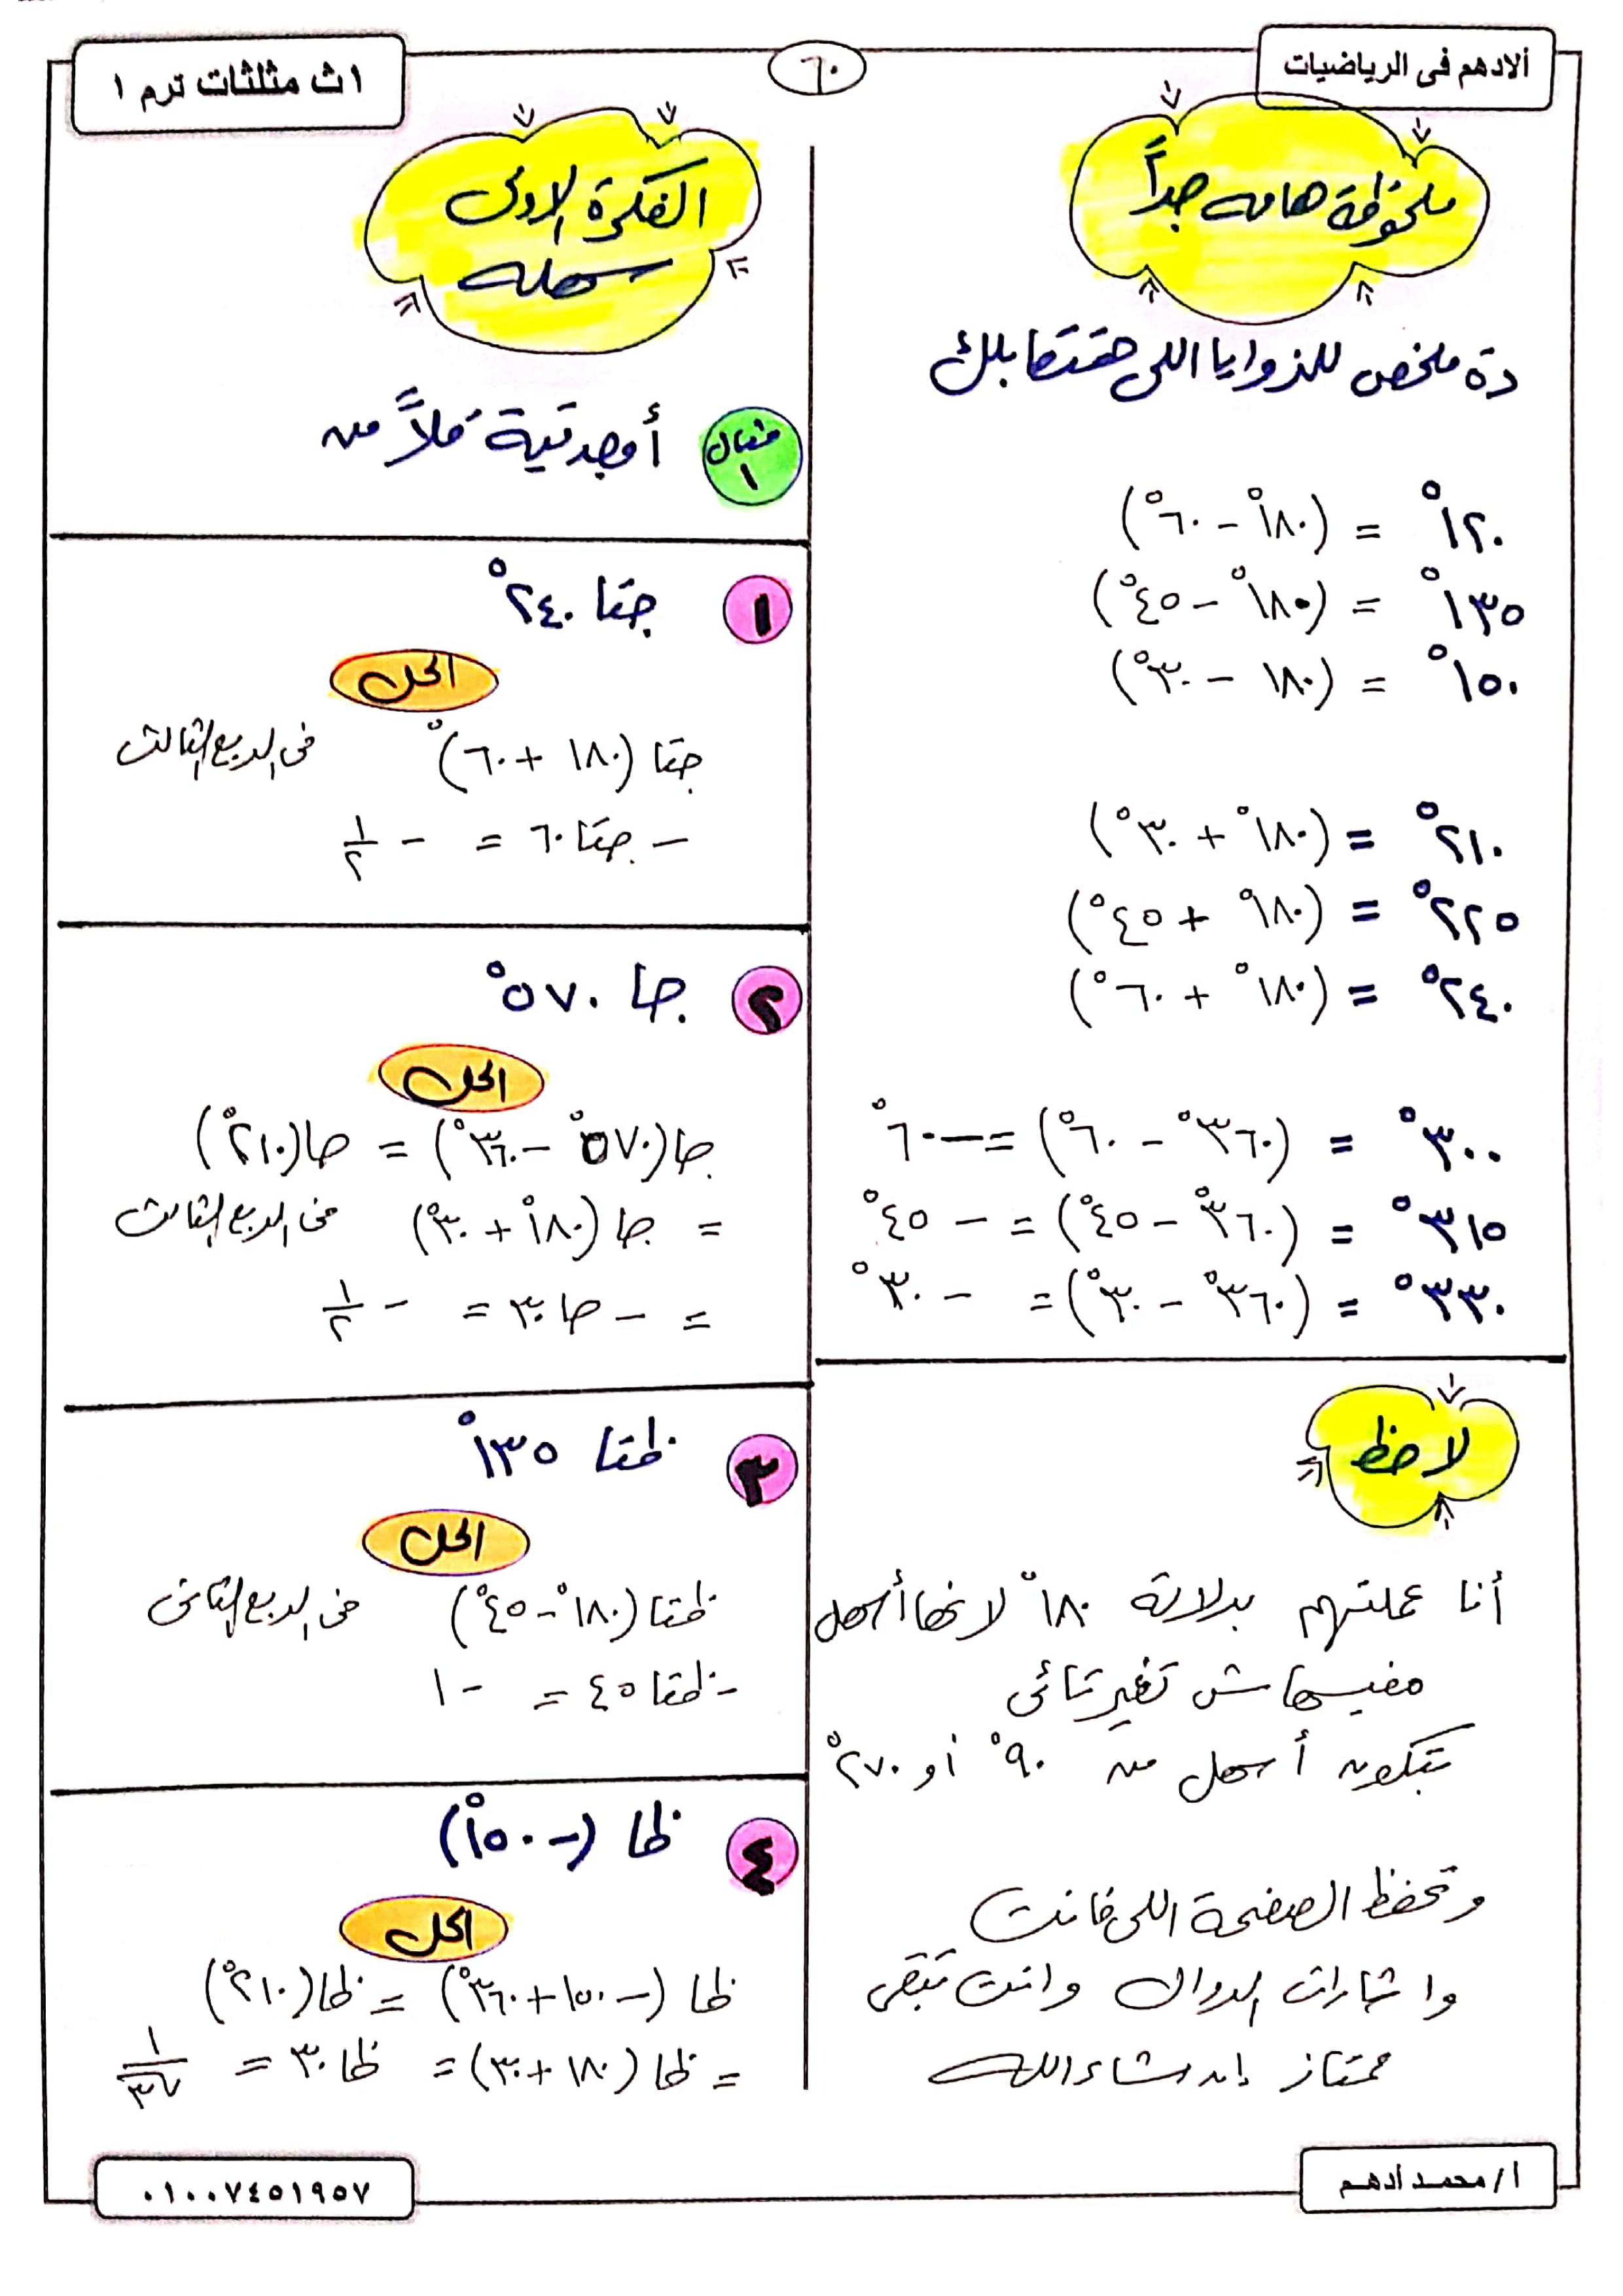 ألادهم فى الرياضيات
٦٠
١ث مثلثات ترم ١
ملحوظة هامه جداً
دة ملخص للزوايا اللى هتتقابلك
١٢٠° = (١٨٠° − ٦٠°)
١٣٥° = (١٨٠° − ٤٥°)
١٥٠° = (١٨٠ − ٣٠°)
٢١٠° = (١٨٠° + ٣٠°)
٢٢٥° = (١٨٠° + ٤٥°)
٢٤٠° = (١٨٠° + ٦٠°)
٣٠٠° = (٣٦٠° − ٦٠°) = −٦٠°
٣١٥° = (٣٦٠° − ٤٥°) = −٤٥°
٣٣٠° = (٣٦٠° − ٣٠°) = −٣٠°
لاحظ
أنا عملتهم بدلالة ١٨٠° لانها أسهل
مفيهاش تغير
بتكون أسهل من ٩٠° أو ٢٧٠°
وتحفظ الصفحة اللى فاتت
واشارات الدوال وانت تبقى
ممتاز إن شاء الله
الفكرة الاولى
سهلة
مثال ١ أوجد قيمة كلاً من
١ جتا ٢٤٠°
الحل
جتا (١٨٠ + ٦٠)° فى الربع الثالث
− جتا ٦٠ = − ١/٢
٢ جا ٥٧٠°
الحل
جا (٥٧٠° − ٣٦٠°) = جا (٢١٠°)
= جا (١٨٠° + ٣٠°) فى الربع الثالث
= − جا ٣٠ = − ١/٢
٣ ظتا ١٣٥°
الحل
ظتا (١٨٠° − ٤٥°) فى الربع الثانى
− ظتا ٤٥ = − ١
٤ ظا (−١٥٠°)
الحل
ظا (−١٥٠ + ٣٦٠°) = ظا (٢١٠°)
= ظا (١٨٠ + ٣٠) = ظا ٣٠ = ١/√٣
أ/ محمد أدهم
٠١٠٠٧٤٥١٩٥٧